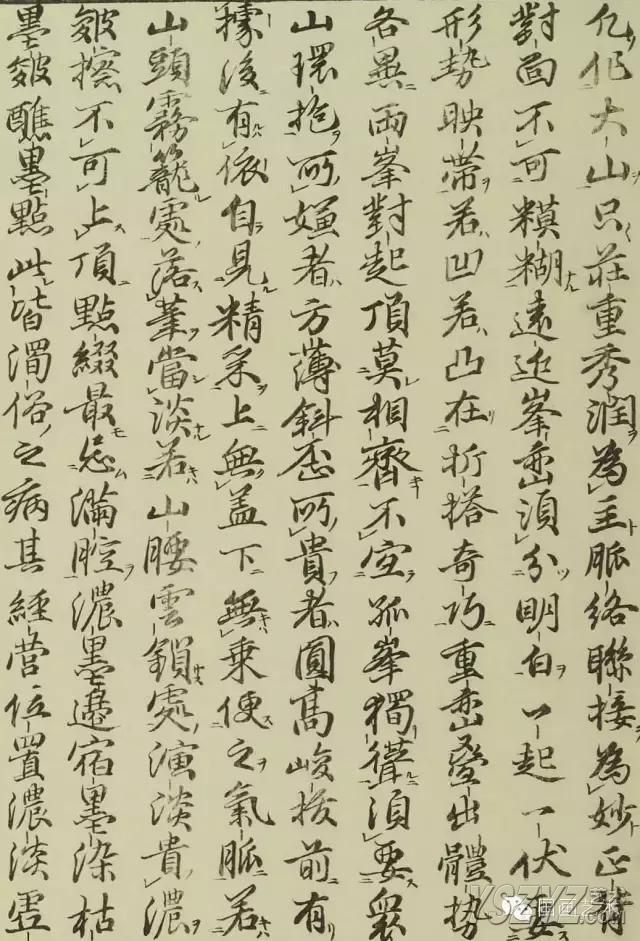 凡作大山只莊重秀潤為主脈絡聯接為妙正背
對面不可糢糊遠近峯巒須分明白一起一伏要
形勢映帶若凹若凸在折搭奇巧重巒疊出體勢
各異兩峯對起頂莫相齊不宜孤峯獨聳須要衆
山環抱所嫌者方薄斜歪所貴者圓高峻拔前有
據後有依自見精采上無盖下無乗使之氣脈若
山頭霧籠處落筆當淡若山腰雲鎖處演淡貴濃
皴擦不可上頂點綴最忌滿腔濃墨邊宿墨染枯
墨皴醮墨點此皆濁俗之病其經營位置濃淡虛
国画艺术